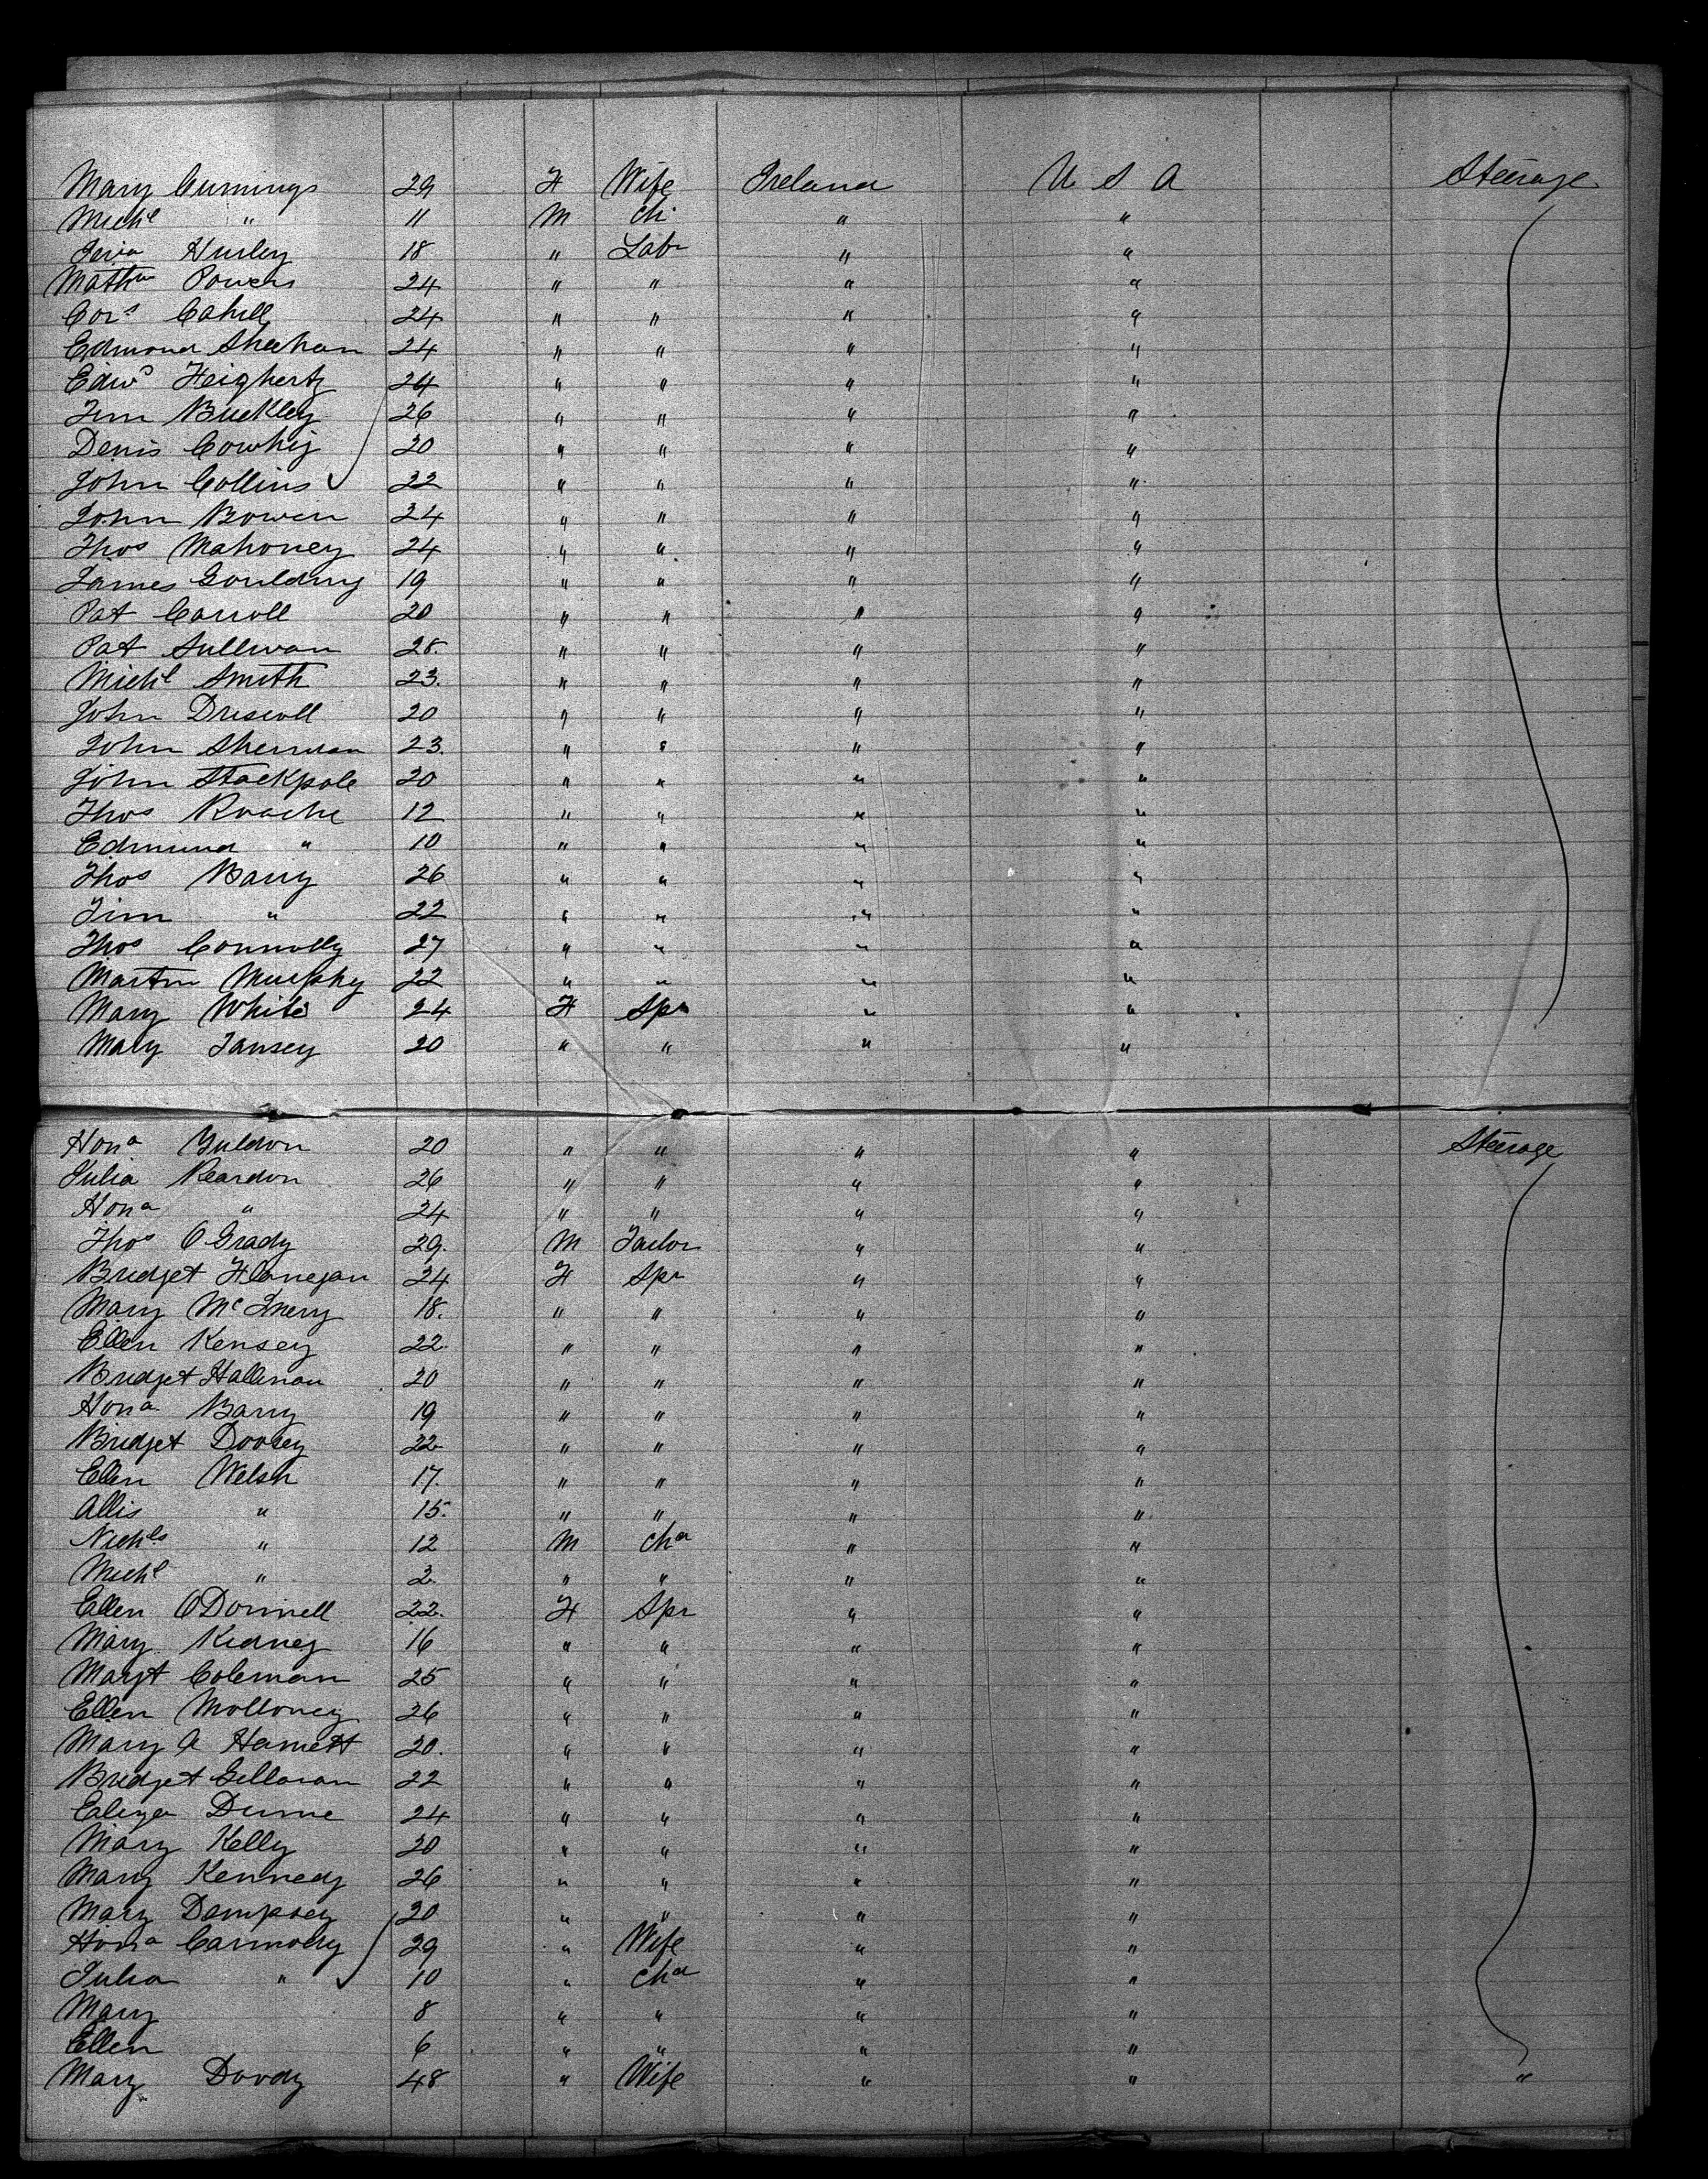 Mary Cumings 29 F Wife Ireland U S A Steerage
Michl " 11 M Ch " "
Jera Hurley 18 " Labr " "
Mathw Powers 24 " " " "
Cors Cahill 24 " " " "
Edmond Sheehan 24 " " " "
Edwd Heigherty 24 " " " "
Jim Buckley 26 " " " "
Denis Cowhig 20 " " " "
John Collins 22 " " " "
John Bowen 24 " " " "
Thos Mahoney 24 " " " "
James Goulding 19 " " " "
Pat Carroll 20 " " " "
Pat Sullivan 28 " " " "
Michl Smith 23 " " " "
John Driscoll 20 " " " "
John Sherman 23 " " " "
John Stackpole 20 " " " "
Thos Roache 12 " " " "
Edmund " 10 " " " "
Thos Barry 26 " " " "
Jim " 22 " " " "
Thos Connolly 27 " " " "
Martin Murphy 22 " " " "
Mary White 24 F Spr " "
Mary Tansey 20 " " " "
Hona Guldon 20 " " " " Steerage
Julia Reardon 26 " " " "
Hona " 24 " " " "
Thos O Grady 29 M Tailor " "
Bridget Flanegan 24 F Spr " "
Mary McInery 18 " " " "
Ellen Kensey 22 " " " "
Bridget Hallenan 20 " " " "
Hona Barry 19 " " " "
Bridget Doosey 22 " " " "
Ellen Welsh 17 " " " "
Allis " 15 " " " "
Nichls " 12 M Chd " "
Michl " 2 " " " "
Ellen O Donnell 22 F Spr " "
Mary Kidney 16 " " " "
Margt Coleman 25 " " " "
Ellen Molloney 26 " " " "
Mary A Harnett 20 " " " "
Bridget Gilloran 22 " " " "
Eliza Dunne 24 " " " "
Mary Kelly 20 " " " "
Mary Kennedy 26 " " " "
Mary Dempsey 20 " " " "
Hona Carmody 29 " Wife " "
Julia " 10 " Chd " "
Mary 8 " " " "
Ellen 6 " " " "
Mary Doody 48 " Wife " " "